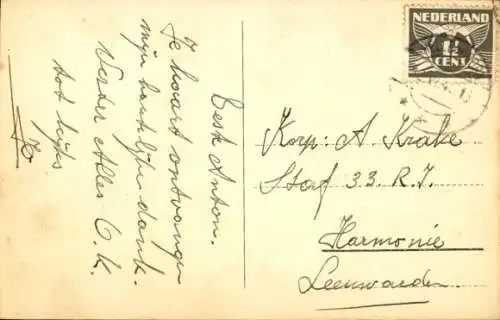 Best Anton.
Je kaart ontvangen
mijn hartelijk dank.
Verder Alles O.K.
tot kijks
Jo
NEDERLAND
1½
CENT
Korp: A Krake
Staf 33. R.I.
Harmonie
Leeuwarden